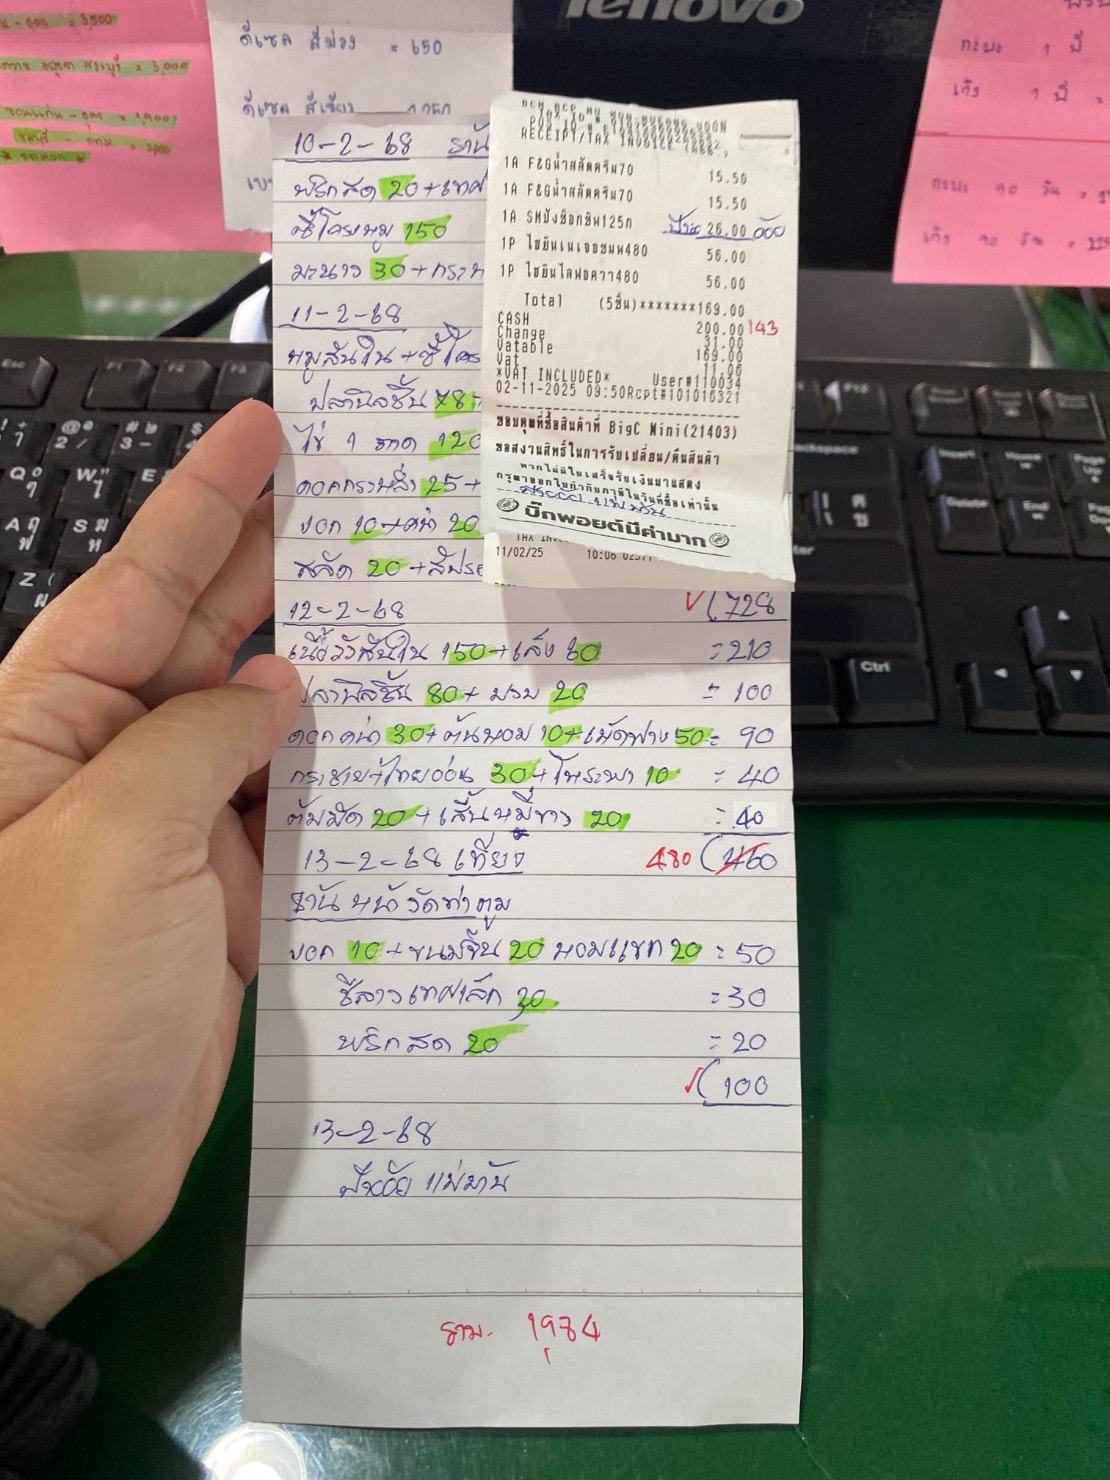 lenovo
= 3,500
= 3,000
= 1,900
ดีเซล สีม่วง = 650
ดีเซล สีเขียว
กะบะ 1 ปี
เก๋ง 1 ปี =
กะบะ 90 วัน =
เก๋ง 90 วัน =
10-2-68 ร้าน
พริกสด 20+เทศ
ซี่โครงหมู 150
มะนาว 30+กระ
11-2-68
หมูสันใน+ซี่โคร
ปลานิลชิ้น
ไข่ 1 ถาด 120
ดอกกะหล่ำ 25+
งอก 10+คน้า 20
สลัด 20+สัปรด
RECEIPT/TAX INVOICE (ABB.)
1A F&Gน้ำสลัดครีม70 15.50
1A F&Gน้ำสลัดครีม70 15.50
1A SMปังช็อกชิพ125ก 26.00
1P ไฮยีนเนเจอชมพ480 56.00
1P ไฮยีนไลฟอควา480 56.00
Total (5ชิ้น)*******169.00
CASH 200.00 143
Change 31.00
Vatable 169.00
Vat 11.06
*VAT INCLUDED* User#110034
02-11-2025 09:50Rcpt#101016321
ขอบคุณที่ซื้อสินค้าที่ BigC Mini(21403)
ขอสงวนสิทธิ์ในการรับเปลี่ยน/คืนสินค้า
หากไม่มีใบเสร็จรับเงินมาแสดง
กรุณาออกใบกำกับภาษีในวันที่ซื้อเท่านั้น
บิ๊กพอยต์มีค่ามาก
11/02/25 10:06
(728
12-2-68
เนื้อวัวสันใน 150+เล้ง 60 =210
ปลานิลชิ้น 80+นวม 20 = 100
ดอกคน้า 30+ต้นหอม 10+เม็ดฟาง 50= 90
กระชาย+ไทยอ่อน 30+โหระพา 10 = 40
ต้มมัด 20+เส้นหมี่ขาว 20 = 40
13-2-68 เที่ยง 480 (460
ร้าน หน้าวัดท่าตูม
งอก 10+ขนมจีน 20 หอมแขก 20 = 50
ชีลาวเทศเล็ก 30 =30
พริกสด 20 =20
(100
13-2-68
ปัจจัย แม่บ้าน
รวม. 1,984